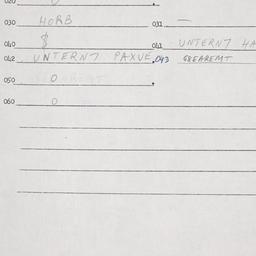 020 0
030 HORB 031 —
040 8 041 UNTERNT HA
042 UNTERNT PAXVE 043 GBEAREMT
050 0
060 0